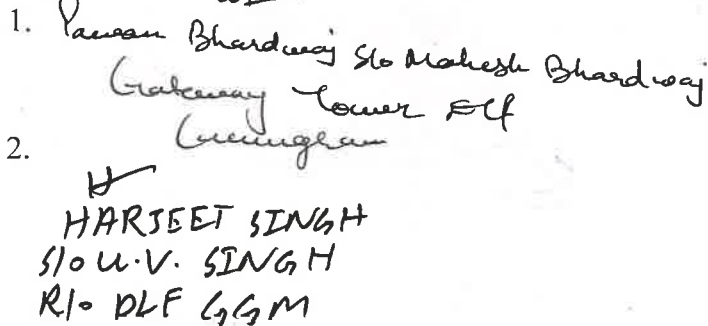 1. Pawan Bhardwaj S/o Mahesh Bhardwaj
Gateway Tower DLF
Gurugram
2.
HARJEET SINGH
S/o U.V. SINGH
R/o DLF GGM